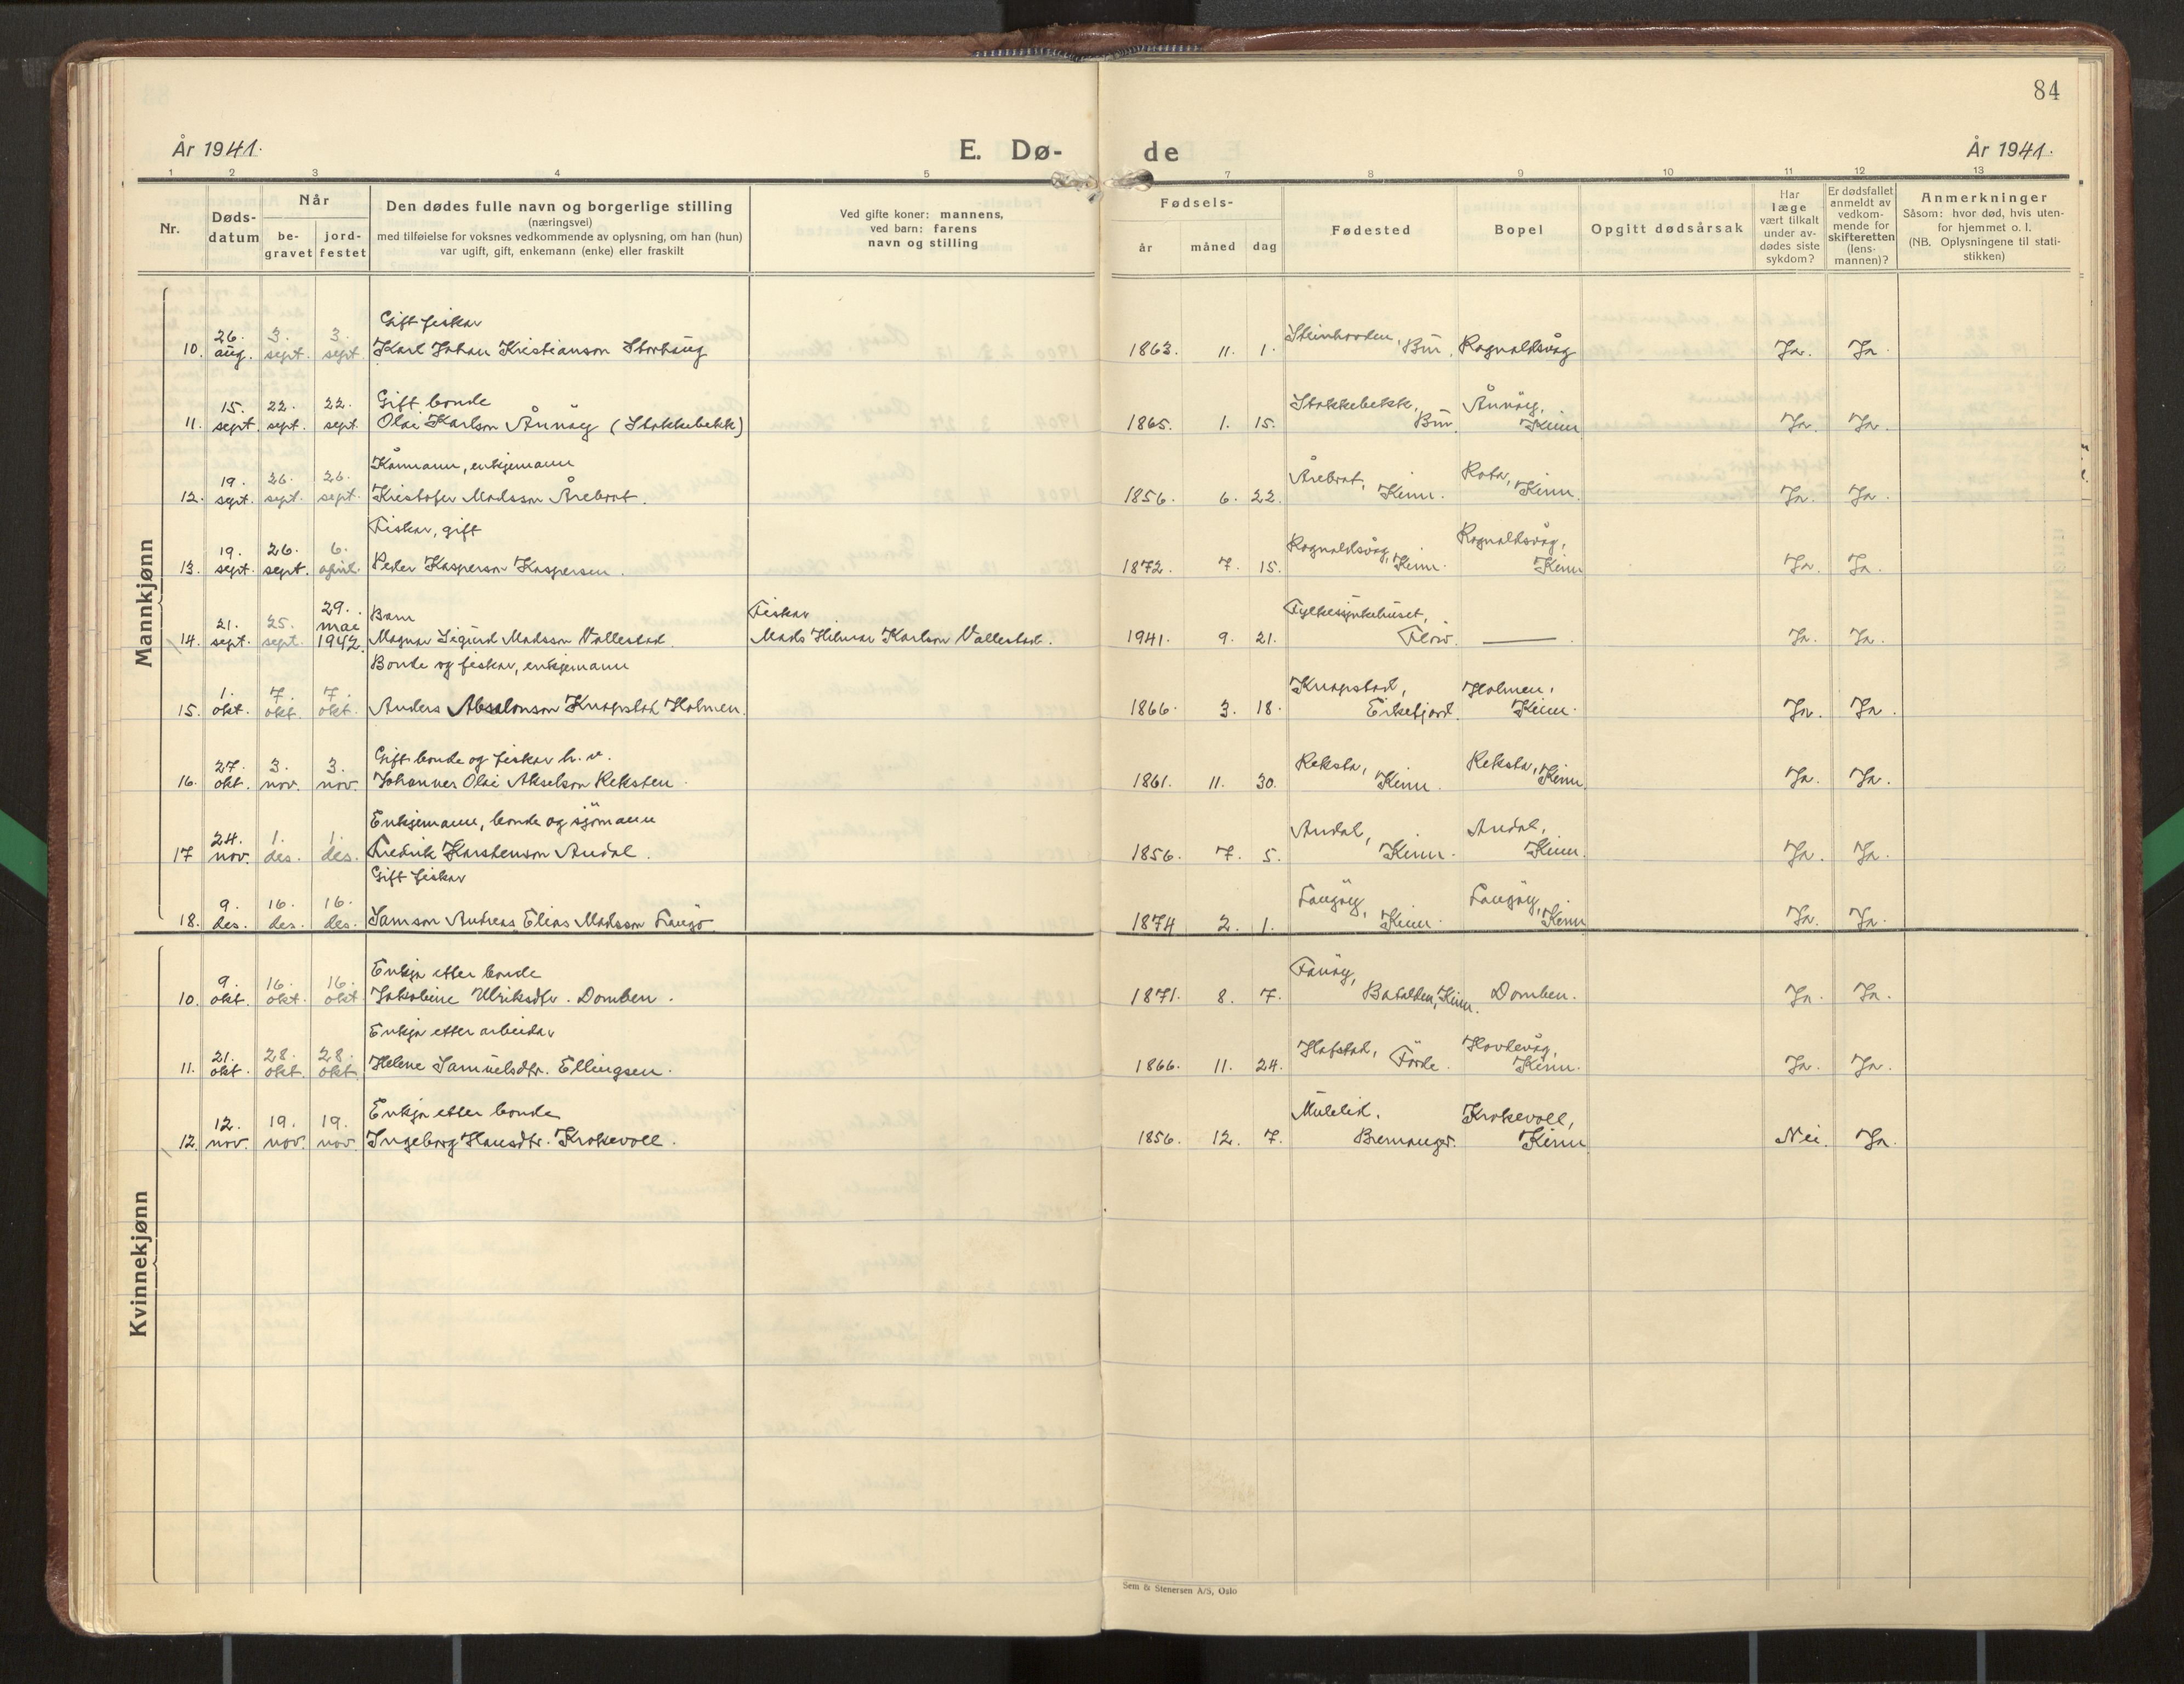 84
År 1941.
E. Dø-
de
År 1941.
1 2 3 4 5 7 8 9 10 11 12 13
Nr.
Døds-
datum
Når
be-
gravet
jord-
festet
Den dødes fulle navn og borgerlige stilling
(næringsvei)
med tilføielse for voksnes vedkommende av oplysning, om han (hun)
var ugift, gift, enkemann (enke) eller fraskilt
Ved gifte koner: mannens,
ved barn: farens
navn og stilling
Fødsels-
år måned dag
Fødested
Bopel
Opgitt dødsårsak
Har
læge
vært tilkalt
under av-
dødes siste
sykdom?
Er dødsfallet
anmeldt av
vedkom-
mende for
skifteretten
(lens-
mannen)?
Anmerkninger
Såsom: hvor død, hvis uten-
for hjemmet o. l.
(NB. Oplysningene til stati-
stikken)
Mannkjønn
Gift fiskar
26. 3. 3.
10. aug. sept. sept. Karl Johan Kristianson Storhaug 1863. 11. 1. Bru. Rognaldsvåg Ja. Ja.
Gift bonde
15. 22. 22. Stokkebekk, Ånnöy,
11. sept. sept. sept. Olai Karlson Ånnöy (Stokkebekk) 1865. 1. 15. Bru. Kinn Ja. Ja.
Kårmann, enkjemann
19. 26. 26. Årebrot, Kinn. Rota, Kinn.
12. sept. sept. sept. Kristofer Madsson Årebrot. 1856. 6. 22. Ja. Ja.
Fiskar, gift
19. 26. 6. Rognaldsvåg, Kinn. Rognaldsvåg,
13. sept. sept. april. Peder Kasperson Kaspersen. 1872. 7. 15. Kinn Ja. Ja.
29. Barn Fiskar Fylkessjukehuset,
21. 25. mai
14. sept. sept. 1942. Magnar Sigurd Madsson Vallestad. Mads Hilmar Karlson Vallestad. 1941. 9. 21. Florø. — Ja. Ja.
Bonde og fiskar, enkjemann
1. 7. 7. Knapstad, Holmen,
15. okt. okt. okt. Anders Absalonson Knapstad Holmen. 1866. 3. 18. Eikefjord. Kinn. Ja. Ja.
Gift bonde og fiskar h. v.
27. 3. 3. Reksta, Reksta, Kinn.
16. okt. nov. nov. Johannes Olai Akselson Reksten. 1861. 11. 30. Kinn. Ja. Ja.
Enkjemann, bonde og sjömann
24. 1. 1. Andal, Andal,
17 nov. des. des. Fredrik Karstenson Andal. 1856. 7. 5. Kinn. Kinn. Ja. Ja.
Gift fiskar
9. 16. 16. Langöy, Langöy,
18. des. des. des. Samson Andreas Elias Madsson Langö 1874 2. 1. Kinn. Kinn Ja. Ja.
Kvinnekjønn
Enkja etter bonde
9. 16. 16. Fanöy,
10. okt. okt. okt Jakobine Ulriksdtr. Domben. 1871. 8. 7. Batalden, Kinn. Domben. Ja. Ja.
Enkja etter arbeidar
21. 28. 28. Hafstad, Förde. Havlevåg,
11. okt. okt. okt. Helene Samuelsdtr. Ellingsen. 1866. 11. 24. Kinn. Ja. Ja.
Enkja etter bonde
12. 19. 19. Mulelid. Krokevoll,
12. nov. nov. nov. Ingeborg Hansdtr. Krokevoll. 1856. 12. 7. Bremanger. Kinn Nei. Ja.
Sem & Stenersen A/S, Oslo